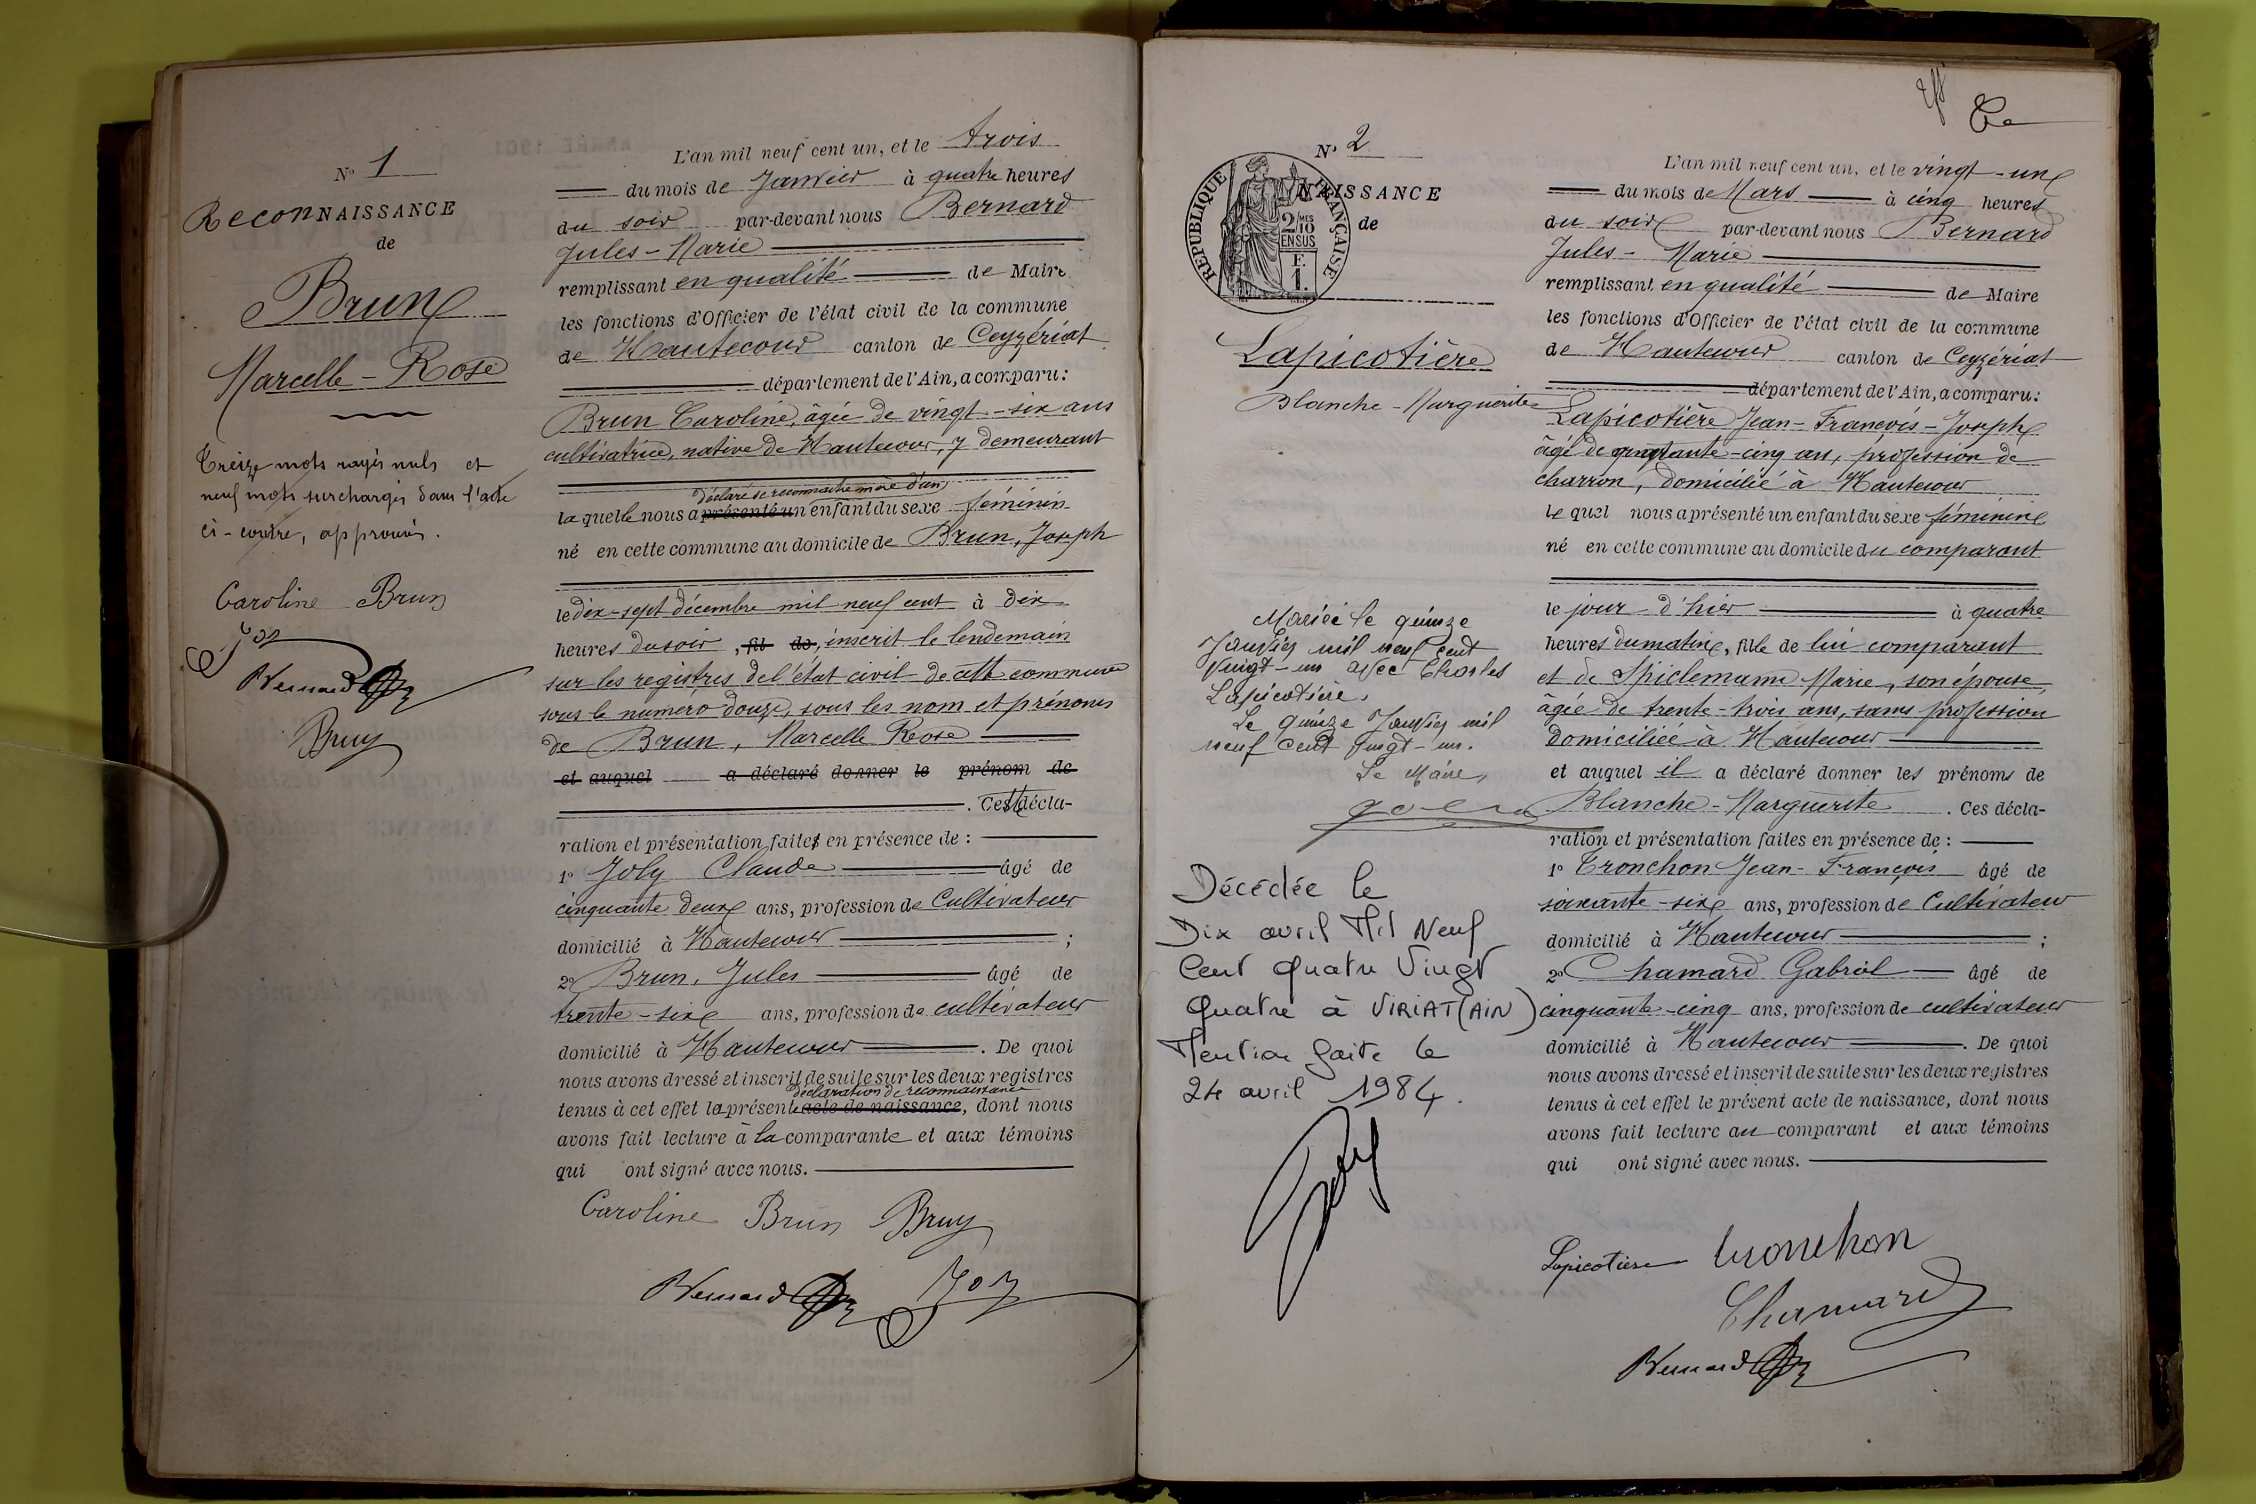 N° 1
ReconNAISSANCE
de
Brun
Marcelle - Rose
Treize mots rayés nuls et
neuf mots surchargés dans l'acte
ci-contre, approuvés.
Caroline Brun
Joly
Bernard
Brun
L'an mil neuf cent un, et le trois
du mois de Janvier à quatre heures
du soir par-devant nous Bernard
Jules - Marie
remplissant en qualité de Maire
les fonctions d'Officier de l'état civil de la commune
de Hautecour canton de Ceyzériat
département de l'Ain, a comparu :
Brun Caroline, âgée de vingt-six ans
cultivatrice, native de Hautecour, y demeurant
déclaré se reconnaitre mère d'un
laquelle nous a présenté un enfant du sexe féminin
né en cette commune au domicile de Brun, Joseph
le dix-sept décembre mil neuf cent à dix
heures du soir, fil de, inscrit le lendemain
sur les registres de l'état civil de cette commune
sous le numéro douze, sous les nom et prénoms
de Brun, Marcelle Rose
et auquel a déclaré donner le prénom de
. Cette décla-
ration et présentation faites en présence de :
1° Joly Claude âgé de
cinquante deux ans, profession de Cultivateur
domicilié à Hautecour ;
2° Brun, Jules âgé de
trente-six ans, profession de cultivateur
domicilié à Hautecour . De quoi
nous avons dressé et inscrit de suite sur les deux registres
déclaration de reconnaissance
tenus à cet effet la présente acte de naissance, dont nous
avons fait lecture à la comparante et aux témoins
qui ont signé avec nous.
Caroline Brun Brun
Bernard Joly
N° 2
NAISSANCE
de
REPUBLIQUE FRANÇAISE
2/10 MES
EN SUS
F.
1.
Lapicotière
Blanche - Marguerite
Mariée le quinze
Janvier mil neuf cent
vingt-un avec Charles
Lapicotière.
Le quinze Janvier mil
neuf cent vingt-un.
Le Maire,
Décédée le
Dix avril Mil Neuf
Cent Quatre Vingt
Quatre à VIRIAT (AIN)
Mention faite le
24 avril 1984.
L'an mil neuf cent un, et le vingt-un
du mois de Mars à cinq heures
du soir par-devant nous Bernard
Jules - Marie
remplissant en qualité de Maire
les fonctions d'Officier de l'état civil de la commune
de Hautecour canton de Ceyzériat
département de l'Ain, a comparu :
Lapicotière Jean-François-Joseph
âgé de quarante-cinq ans, profession de
charron, domicilié à Hautecour
lequel nous a présenté un enfant du sexe féminin
né en cette commune au domicile du comparant
le jour d'hier à quatre
heures du matin, fille de lui comparant
et de Spiclemann Marie, son épouse,
âgée de trente-trois ans, sans profession
domiciliée à Hautecour
et auquel il a déclaré donner les prénoms de
Blanche - Marguerite . Ces décla-
ration et présentation faites en présence de :
1° Tronchon Jean-François âgé de
soixante-six ans, profession de Cultivateur
domicilié à Hautecour ;
2° Chamard Gabriel âgé de
cinquante-cinq ans, profession de cultivateur
domicilié à Hautecour . De quoi
nous avons dressé et inscrit de suite sur les deux registres
tenus à cet effet le présent acte de naissance, dont nous
avons fait lecture au comparant et aux témoins
qui ont signé avec nous.
Lapicotiere Tronchon
Chamard
Bernard